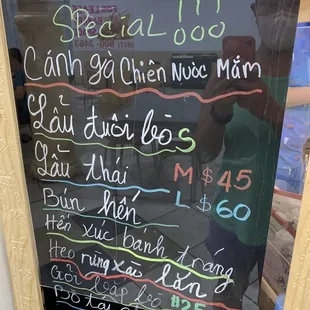 Special !!!
Cánh gà Chiên Nước Mắm
Lẩu đuôi bò S
Lẩu thái M $45
L $60
Bún hến
Hến xúc bánh tráng
Heo rừng xào lăn
Gỏi bắp bò $25
Bò tái